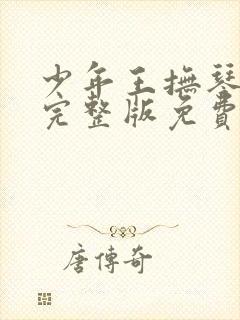 少年王撫琴
完整版免費
唐傳奇